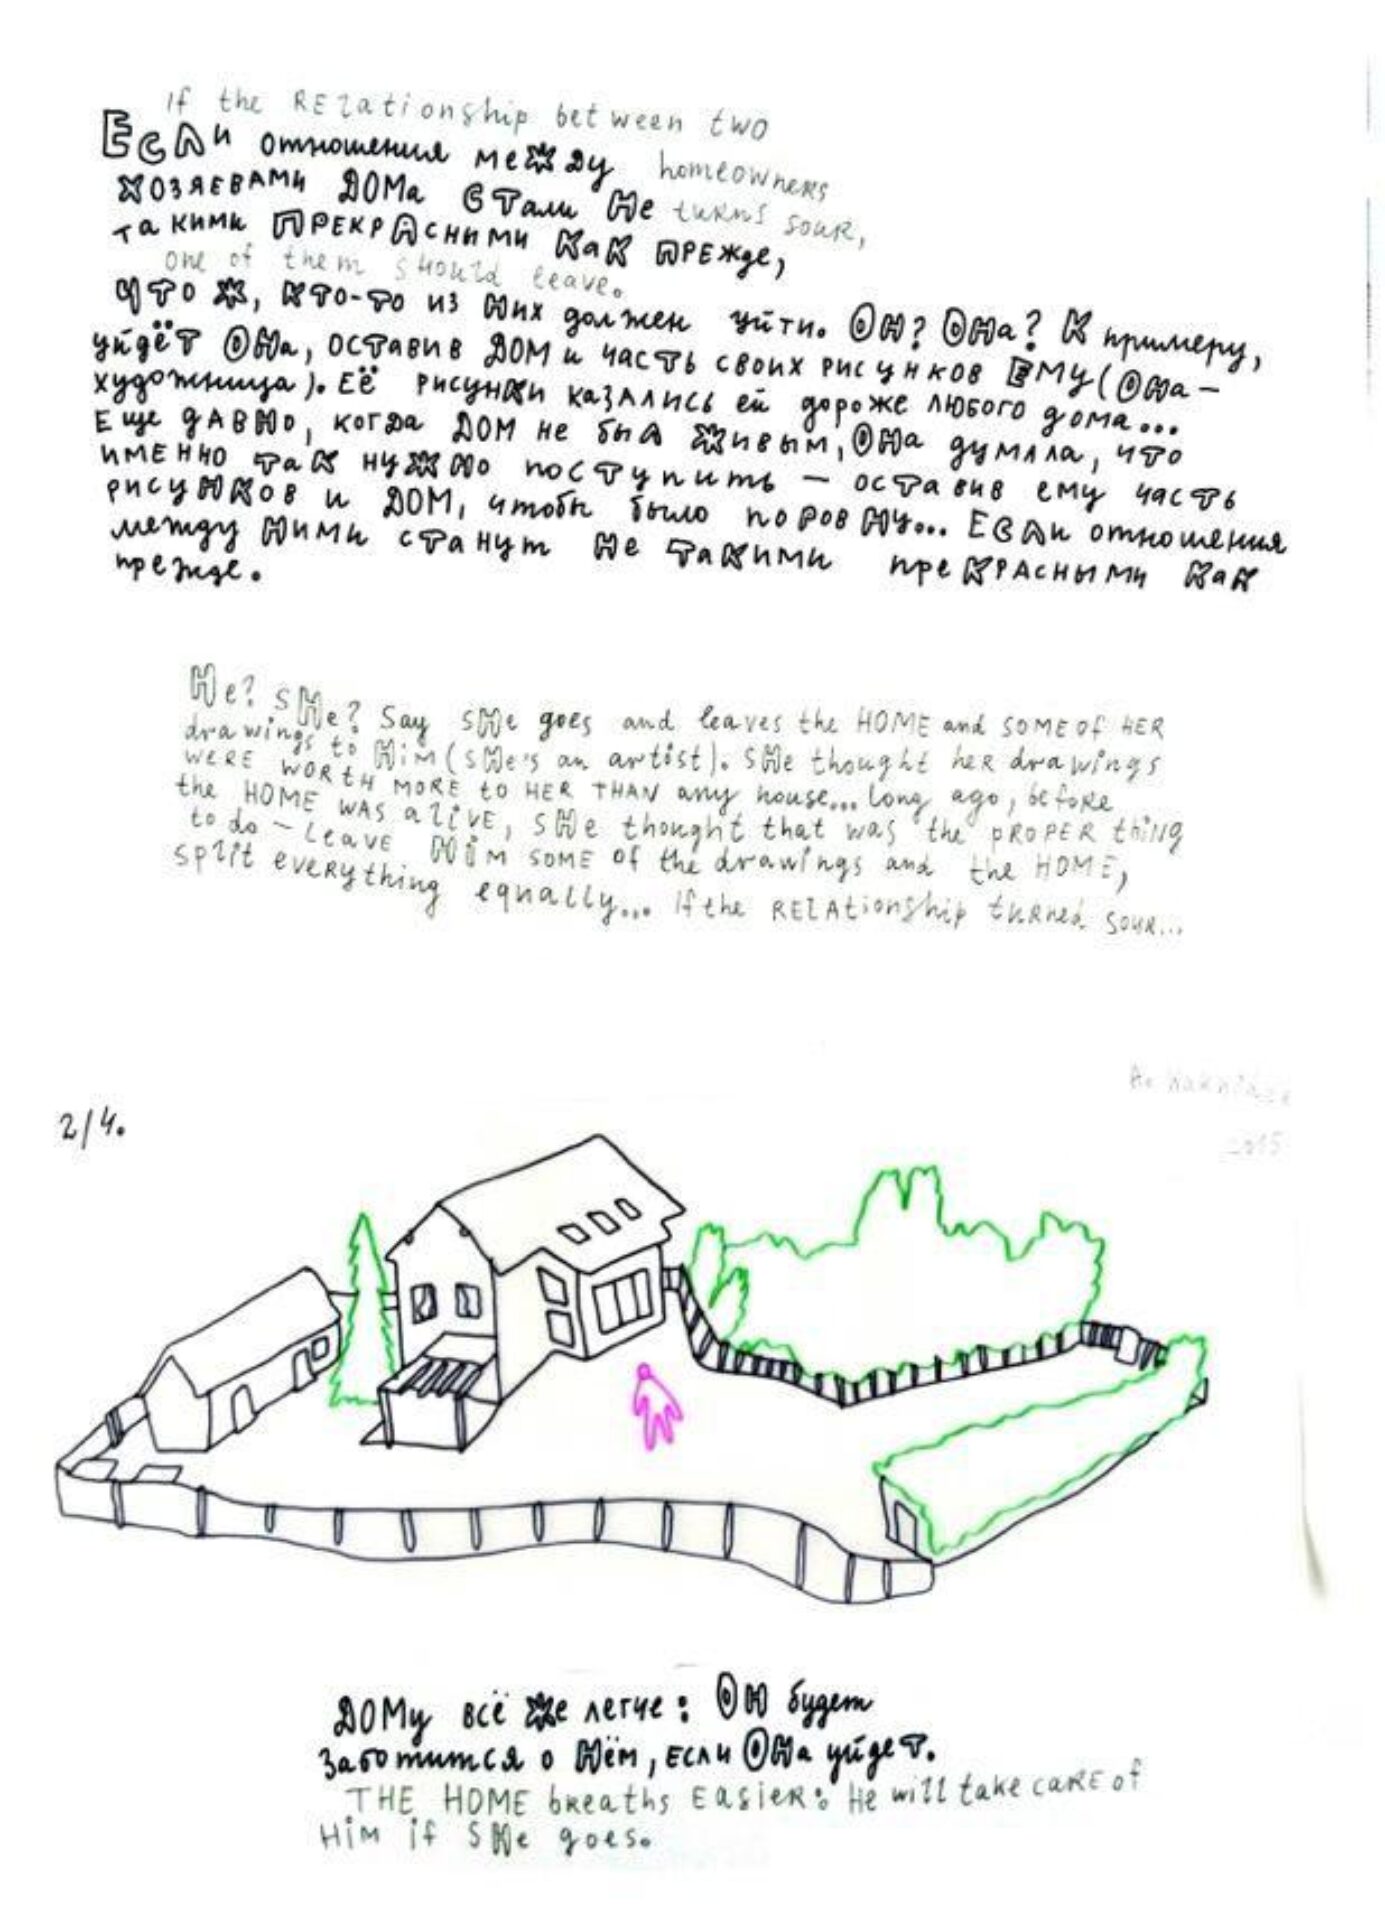 If the RElationship between two
Если отношения между homeowners
хозяевами ДОМа стали не turns sour,
такими ПРЕКРАСНИМИ КаК ПРЕжде,
one of them should leave.
что ж, кто-то из них должен уйти. Он? Она? К примеру,
уйдёт Она, оставив ДОМ и часть своих рисунков ЕМУ (Она –
художница). Её рисунки казались ей дороже любого дома...
Еще давно, когда ДОМ не был живым, Она думала, что
именно так нужно поступить – оставив ему часть
рисунков и ДОМ, чтобы было поровну... Если отношения
между ними станут не такими преКРАСНЫМИ КаК
прежде.
He? SHe? Say SHe goes and leaves the HOME and SOME OF HER
drawings to HiM (SHe's an artist). SHe thought her drawings
WERE WORtH MORE to HER THAN any house... long ago, before
the HOME WAS aliVE, SHe thought that was the PROPER thing
to do – LEAVE HiM SOME of the drawings and the HOME,
split everything equally... If the RElAtionship turned sour...
2/4.
2015
ДОМу всё же легче: Он будет
заботится о Нём, если Она уйдет.
THE HOME breaths EasiER: He will take caRE of
HiM if SHe goes.